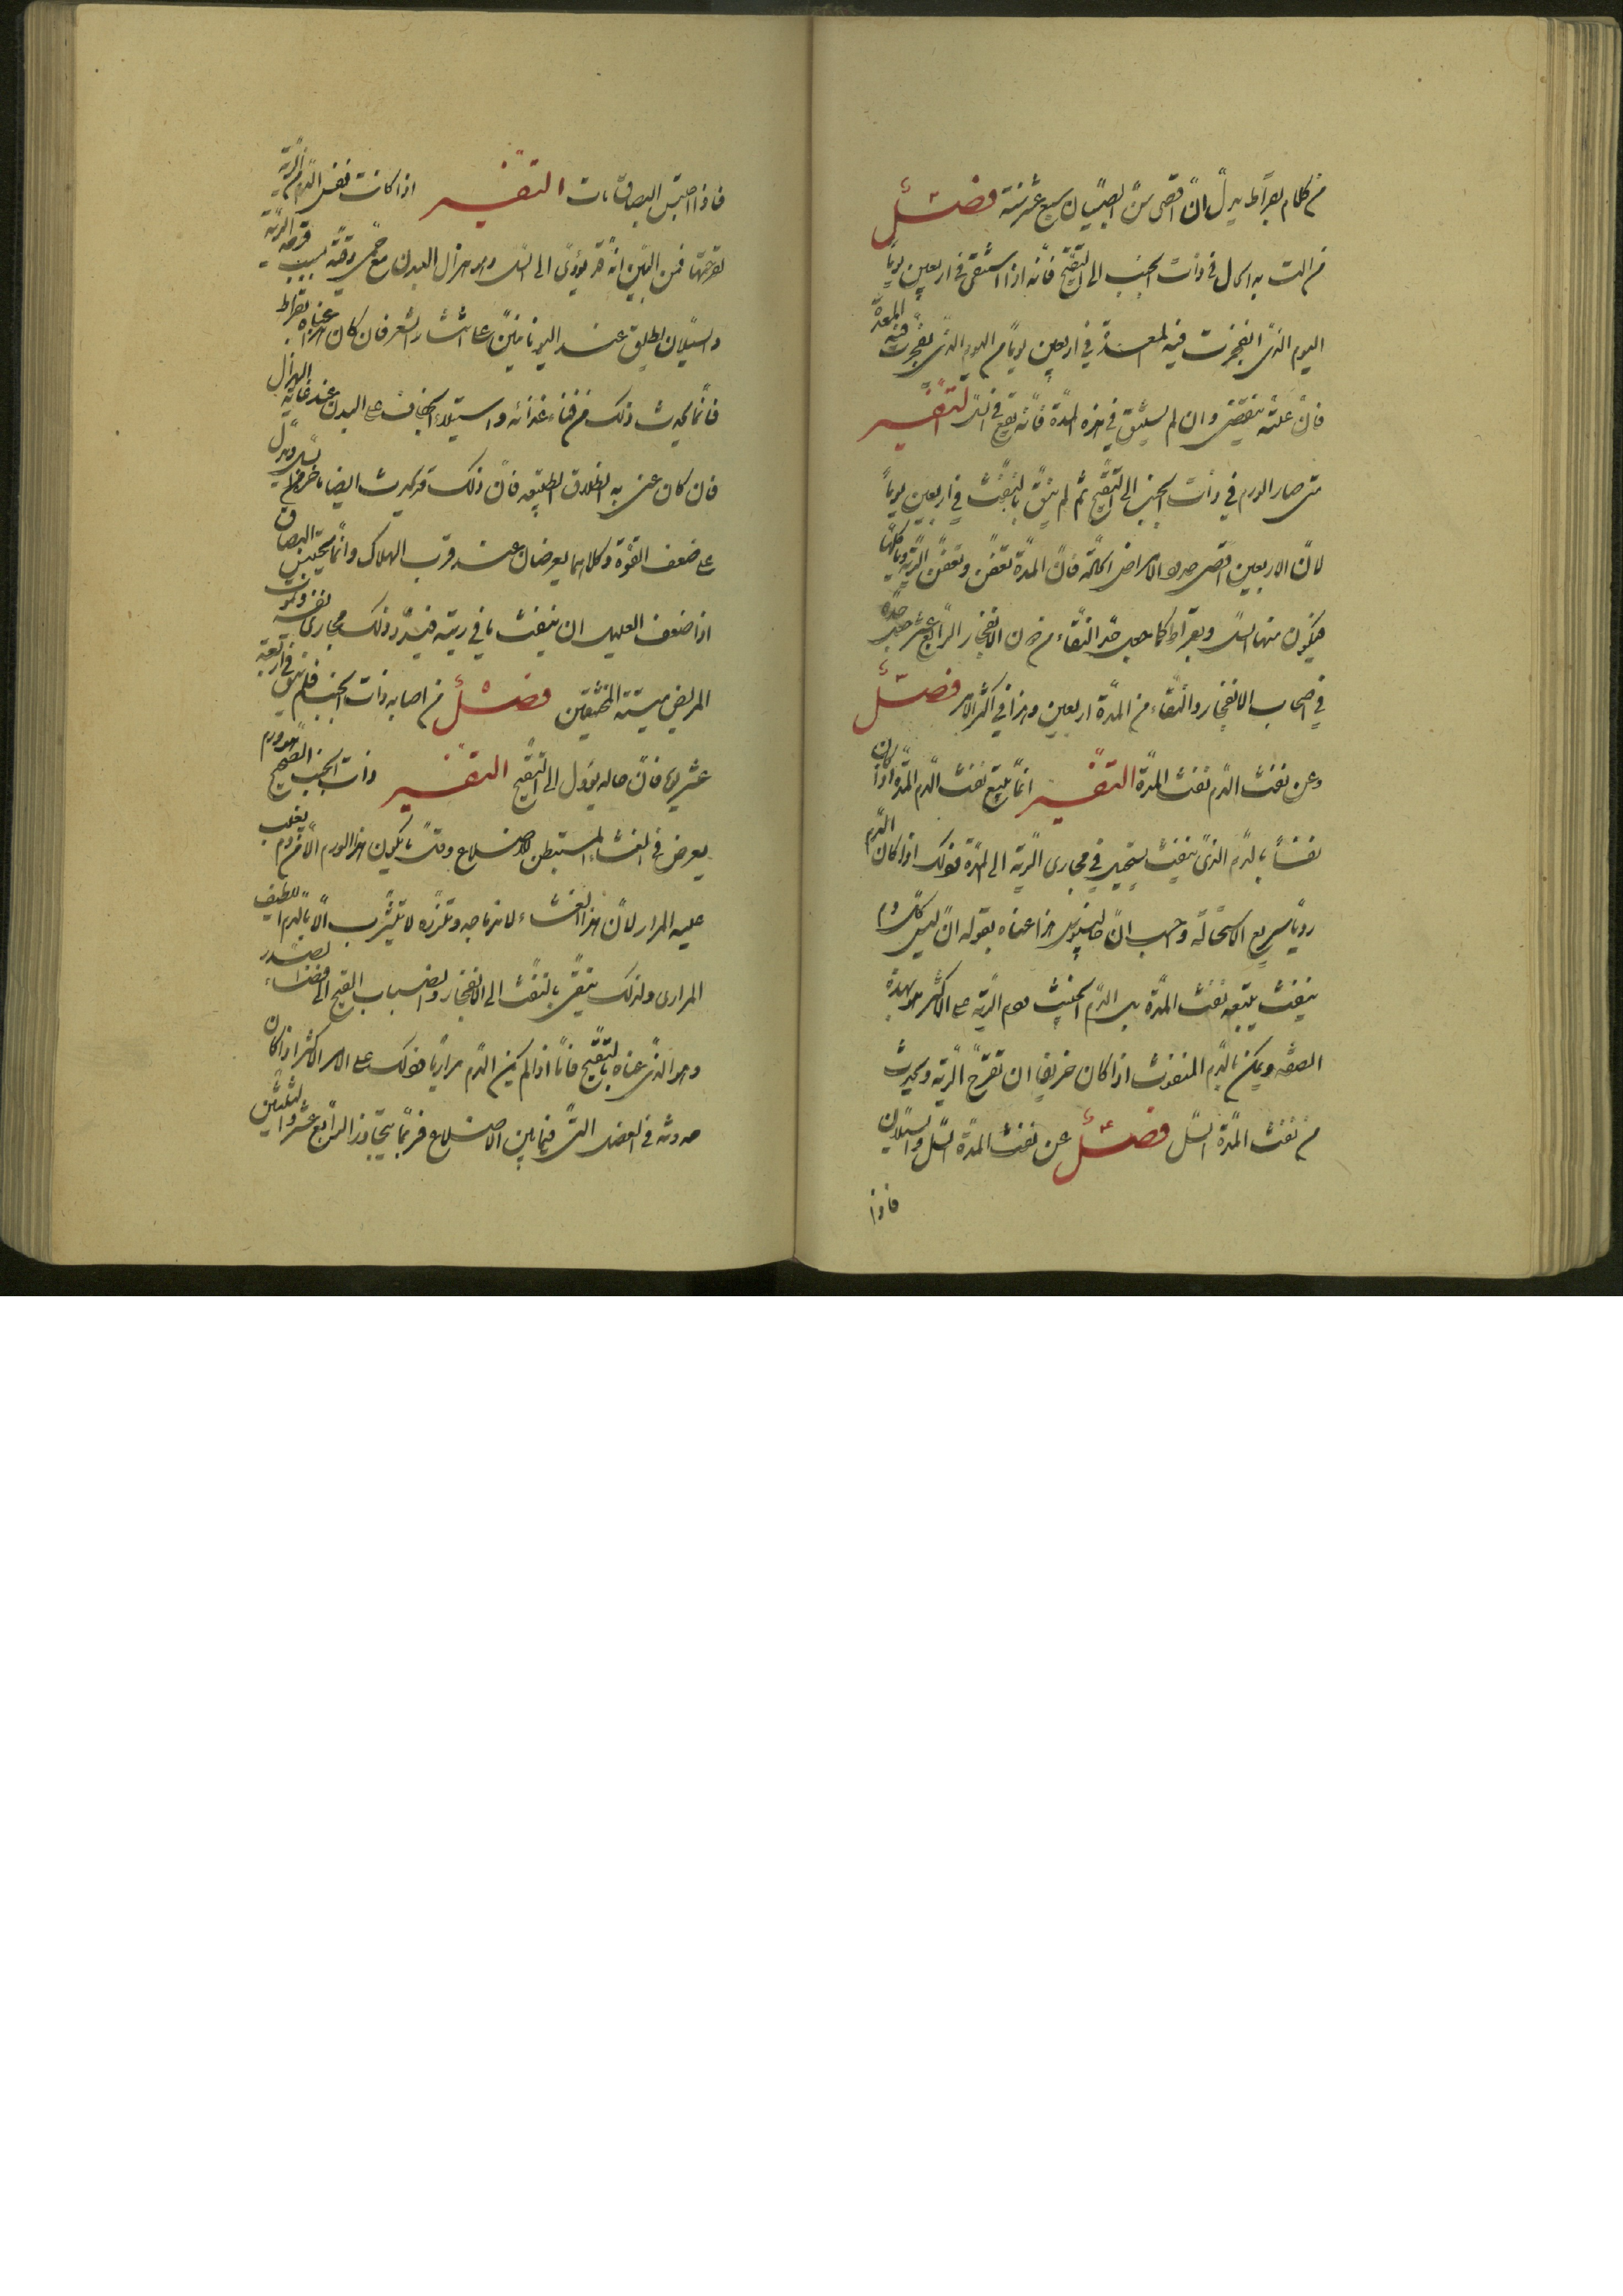 من كلام بقراط يدل ان اقصى سن الصبيان سبع عشر سنة فصل
من الت به الحال في ذات الجنب الى التقيح فانه اذا استنقى في اربعين يوما من
اليوم الذي انفجرت فيه المدة في اربعين يوما من اليوم الذي انفجرت فيه المدة
فان علته تنقضي وان لم يستنق في هذه المدة فانه يقع في السل التفسير
متى صار الورم في ذات الجنب الى التقيح ثم لم ينق بالنفث في اربعين يوما
لان الاربعين اقصى حدود الامراض الحادة فان المدة تعفن وتعفن الرية وتاكلها
فيكون منها السل وبقراط كما جعل حد النقاء من الانفجار الرابع عشر جعل حده
في اصحاب الانفجار والنقاء من المدة اربعين وهذا في اكثر الامر فصل
وعن نفث الدم نفث المدة التفسير انما يتبع نفث الدم المدة اذا كان
نفثا بالدم الذي ينفث يستحيل في مجاري الرية الى المدة فذلك اذا كان الدم
رديا سريع الاستحالة وحسب ان جالينوس هذا عناه بقوله ان ليس كل دم
ينفث يتبعه نفث المدة بل الدم الخبيث ودم الرية على الاكثر هو بهذه
الصفة ويمكن بالدم المنفوث اذا كان حريفا ان تقرح الرية ويحدث
من نفث المدة السل فصل عن نفث المدة السل والسيلان
فاذا
فاذا احتبس البصاق مات التفسير اذا كانت نفس الدم من الرية
لقرحتها فمن البين انه قد يؤدى الى السل وهو هزال البدن مع حمى دقية بسبب قرحة الرية
والسيلان يطلق عند اليونانيين على انتشار الشعر فان كان هذا عناه بقراط
فانما يحدث ذلك من فناء غذائه واستيلاء الجفاف على البدن عند غاية الهزال
فان كان عنى به انطلاق الطبيعة فان ذلك قد يحدث ايضا باخره من السل ويدل
على ضعف القوة وكلاهما يعرضان عند قرب الهلاك وانما يحتبس البصاق
اذا ضعف العليل ان ينفث ما في ريته فيسد ذلك مجاري نفسه ويموت
المريض ميتة المختنقين فصل من اصابه ذات الجنب فلم ينق في اربعة
عشر يوما فان حاله يؤول الى التقيح التفسير ذات الجنب الصحيح هو ورم
يعرض في الغشاء المستبطن للاضلاع وقل ما يكون هذا الورم الا من دم يغلب
عليه المرار لان هذا الغشاء لاندماجه وتلززه لا يتشرب الا بالدم اللطيف
المراري ولذلك ينقى بالنفث الى الانفجار وانصباب القيح الى فضاء الصدر
وهو الذي عناه بالتقيح فاما اذا لم يكن الدم مراريا فذلك على الامر الاكثر اذا كان
حدوثه في العضل التي فيما بين الاضلاع فربما يتجاوز الرابع عشر والعشرين